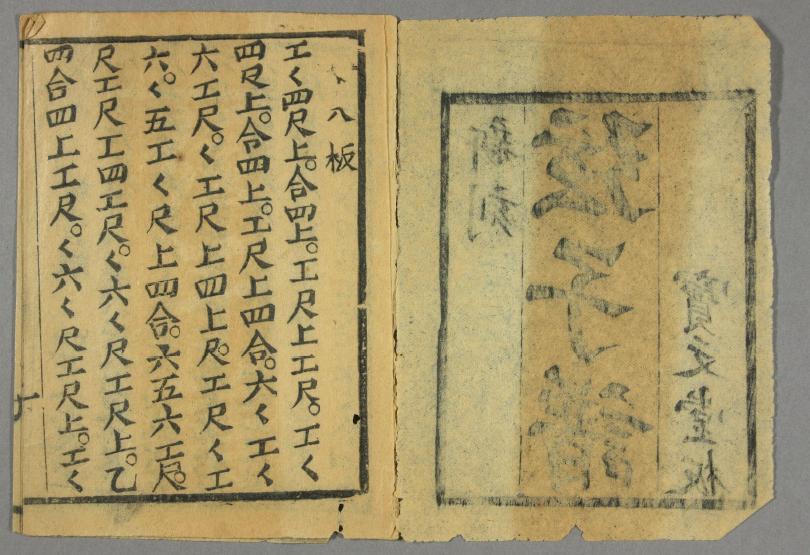 新刻
弦子譜
寶文堂板
八板
工く四尺上。合四上。工尺上工尺。工く
四尺上。合四上。工尺上四合。六く工く
六工尺。く工尺上四上尺。工尺く工
六。く五工く尺上四合。六五六工尺。
尺工尺工四工尺。く六く尺工尺上。乙
四合四上工尺。く六く尺工尺上。工く